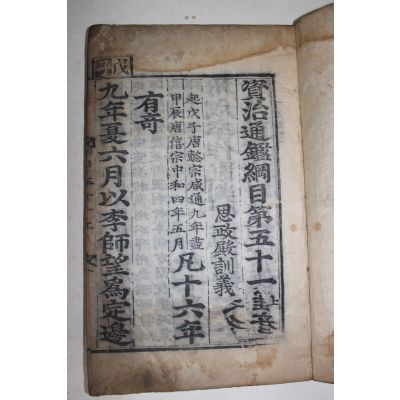 資治通鑑綱目第五十一
上
思政殿訓義
起戊子唐懿宗咸通九年盡
甲辰唐僖宗中和四年五月
凡十六年
有奇
戊子
九年夏六月以李師望爲定邊